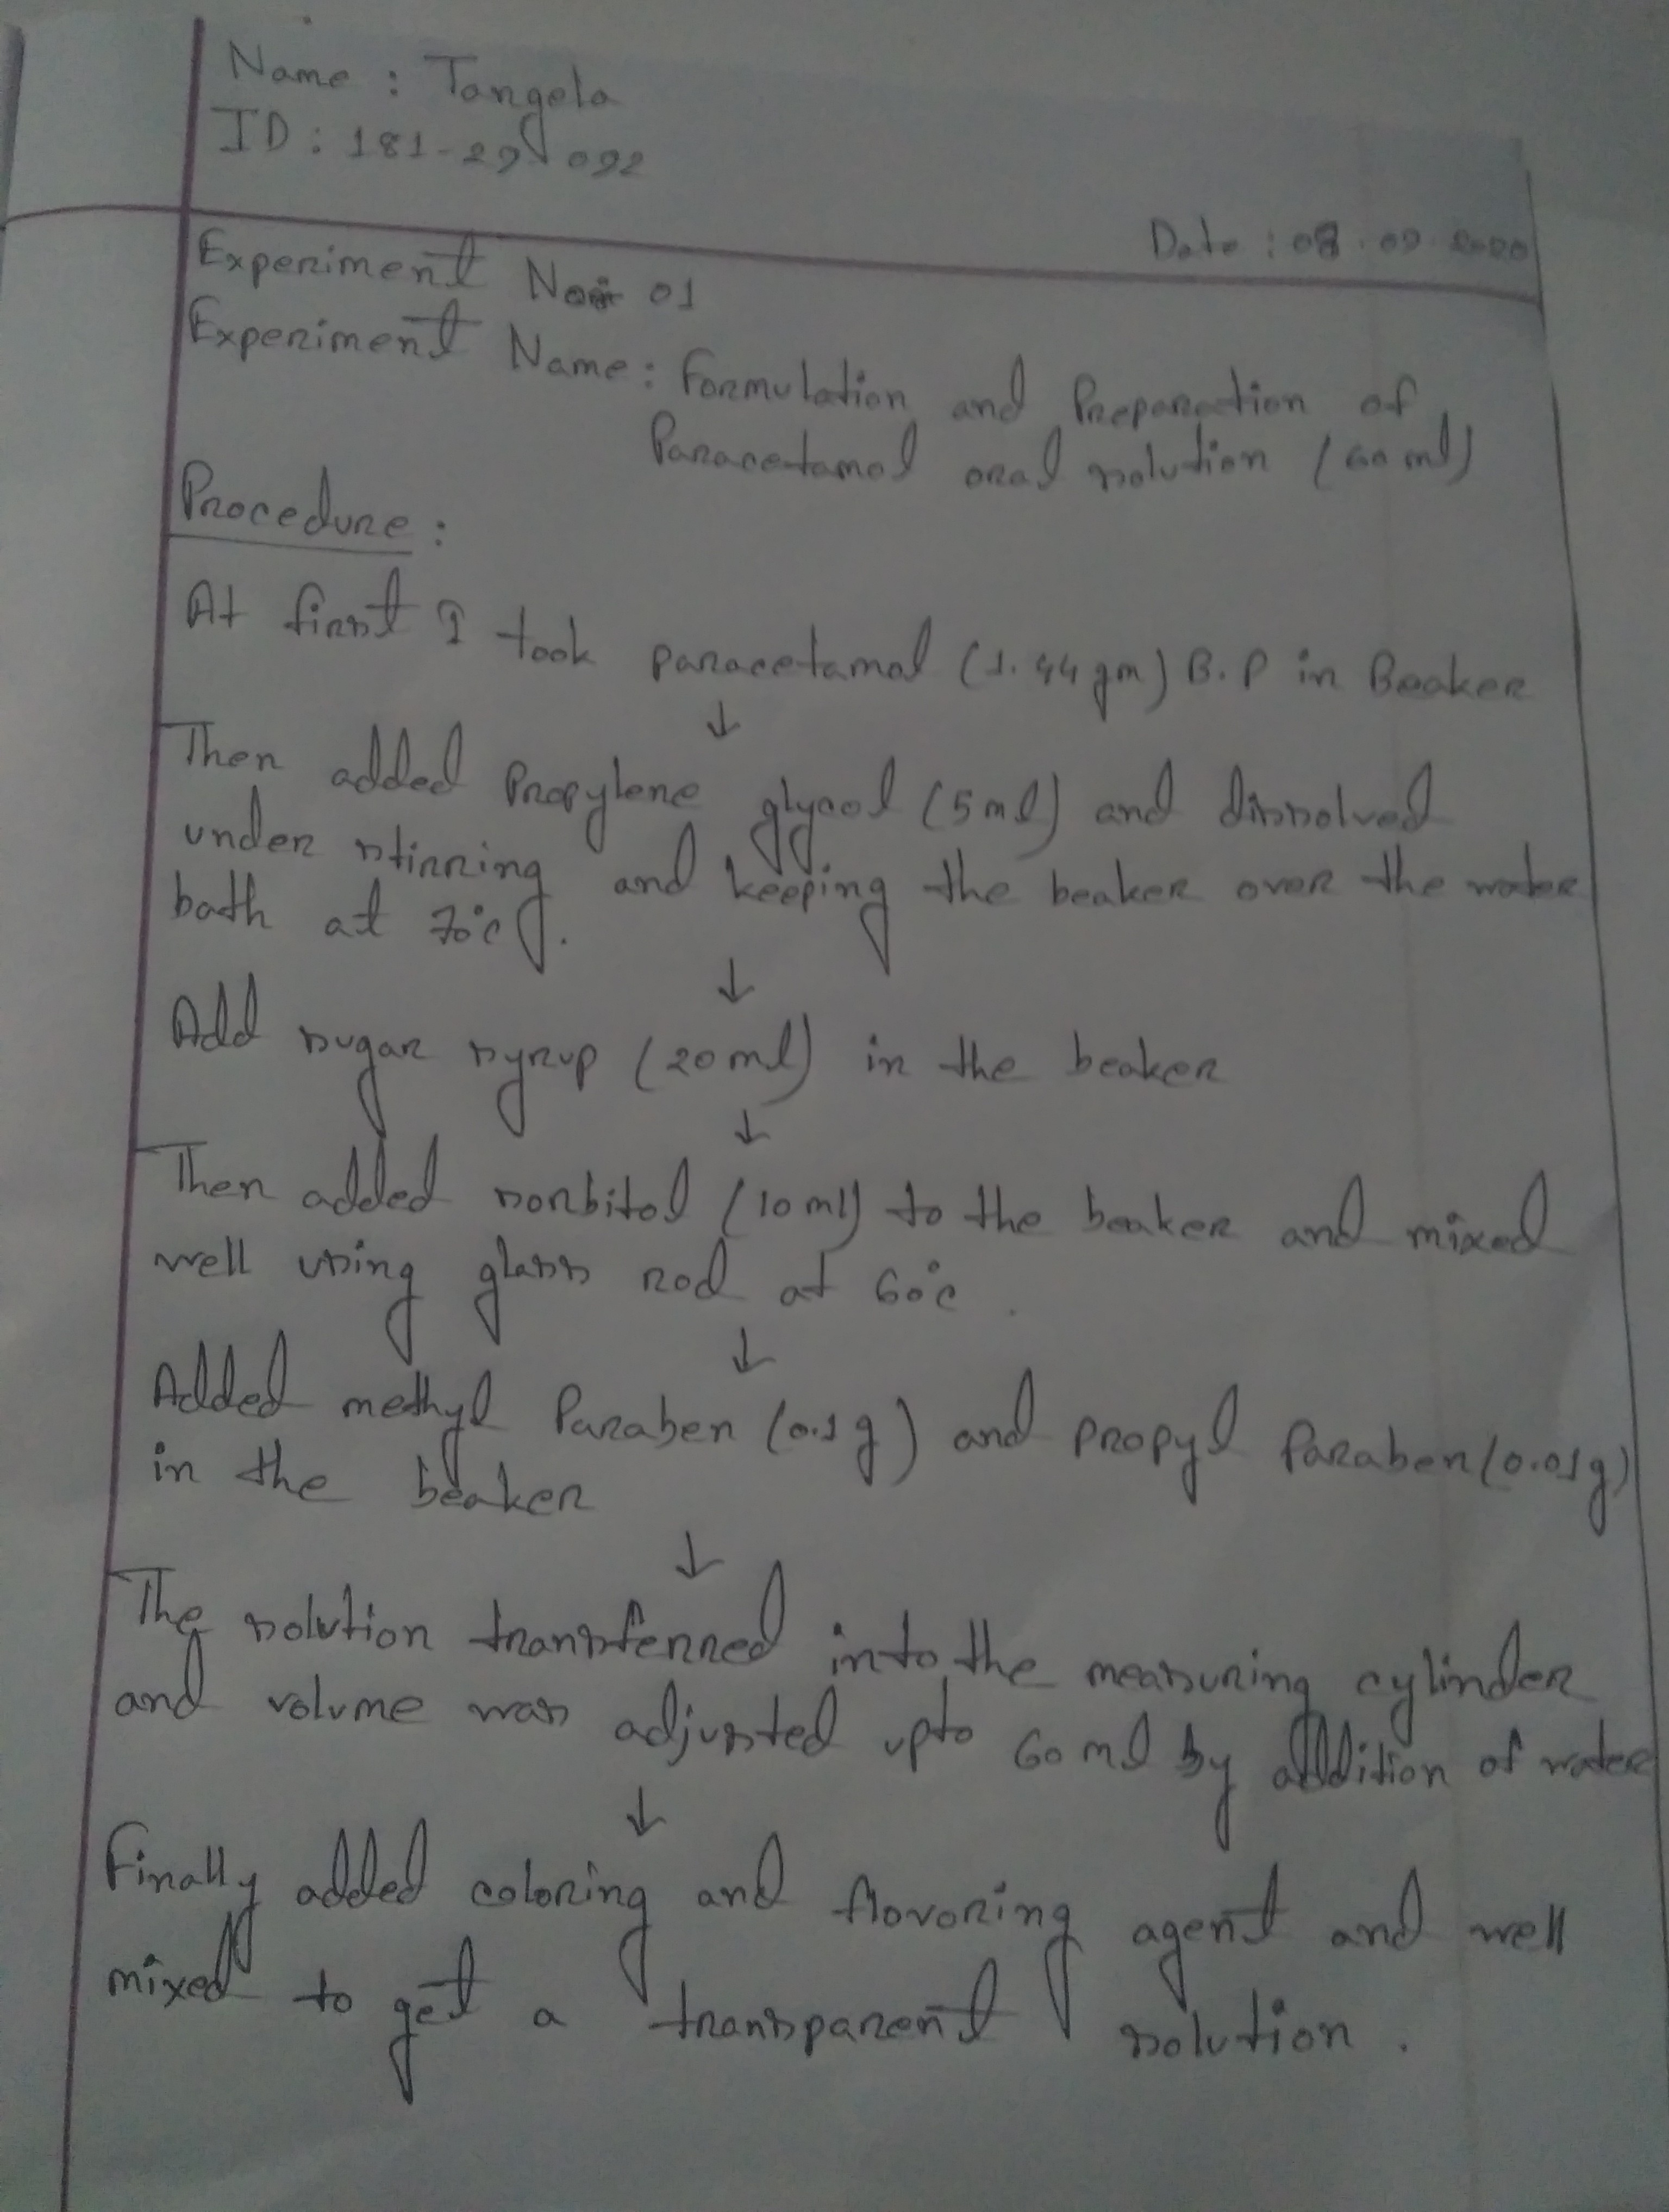 Name : Tangela
ID : 181-29-092
Date : 08.09.2020
Experiment No: 01
Experiment Name: Formulation and Preparation of
Paracetamol oral solution (60 ml)
Procedure :
At first I took paracetamol (1.44 gm) B.P in Beaker
↓
Then added Propylene glycol (5 ml) and dissolved
under stirring and keeping the beaker over the water
bath at 70°C.
↓
Add sugar syrup (20 ml) in the beaker
↓
Then added sorbitol (10 ml) to the beaker and mixed
well using glass rod at 60°C.
↓
Added methyl Paraben (0.1 g) and propyl Paraben (0.01g)
in the beaker
↓
The solution transferred into the measuring cylinder
and volume was adjusted upto 60 ml by addition of water
↓
Finally added coloring and flavoring agent and well
mixed to get a transparent solution.